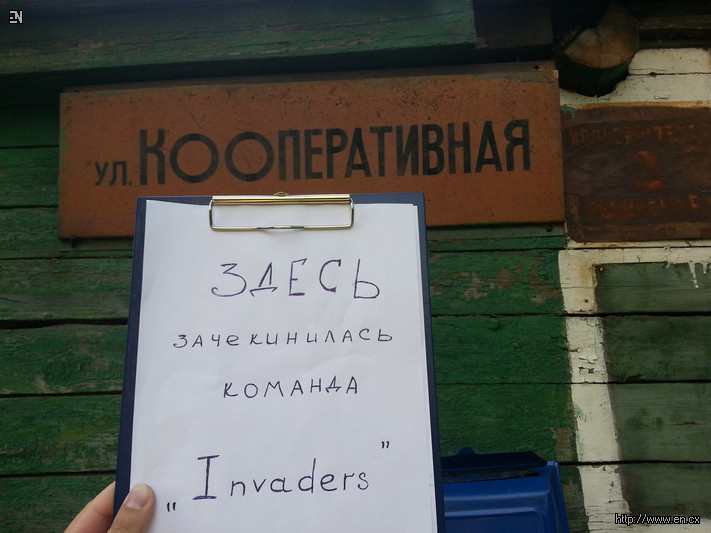 EN
ул. КООПЕРАТИВНАЯ
ЗДЕСЬ
ЗАЧЕКИНИЛАСЬ
КОМАНДА
„Invaders”
http://www.en.cx